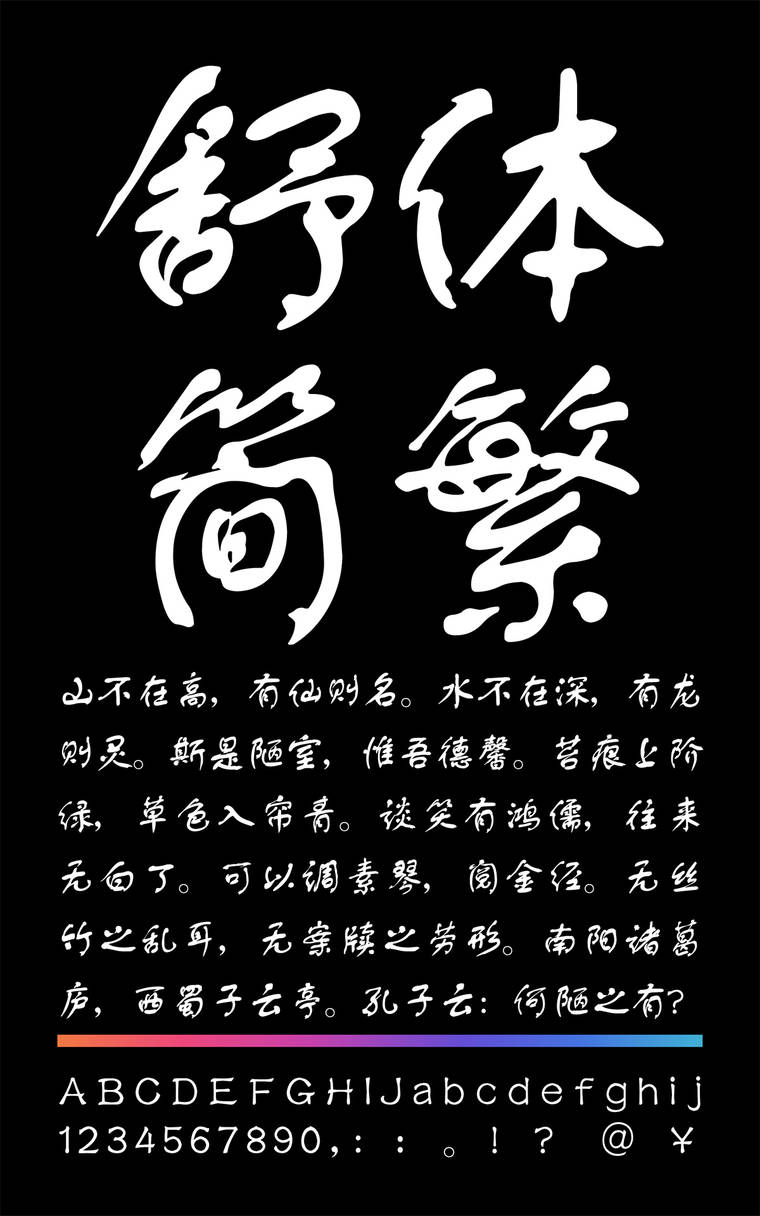 舒体
简繁
山不在高，有仙则名。水不在深，有龙
则灵。斯是陋室，惟吾德馨。苔痕上阶
绿，草色入帘青。谈笑有鸿儒，往来
无白了。可以调素琴，阅金经。无丝
竹之乱耳，无案牍之劳形。南阳诸葛
庐，西蜀子云亭。孔子云：何陋之有？
ABCDEFGHIJabcdefghij
1234567890,：：。！？@¥